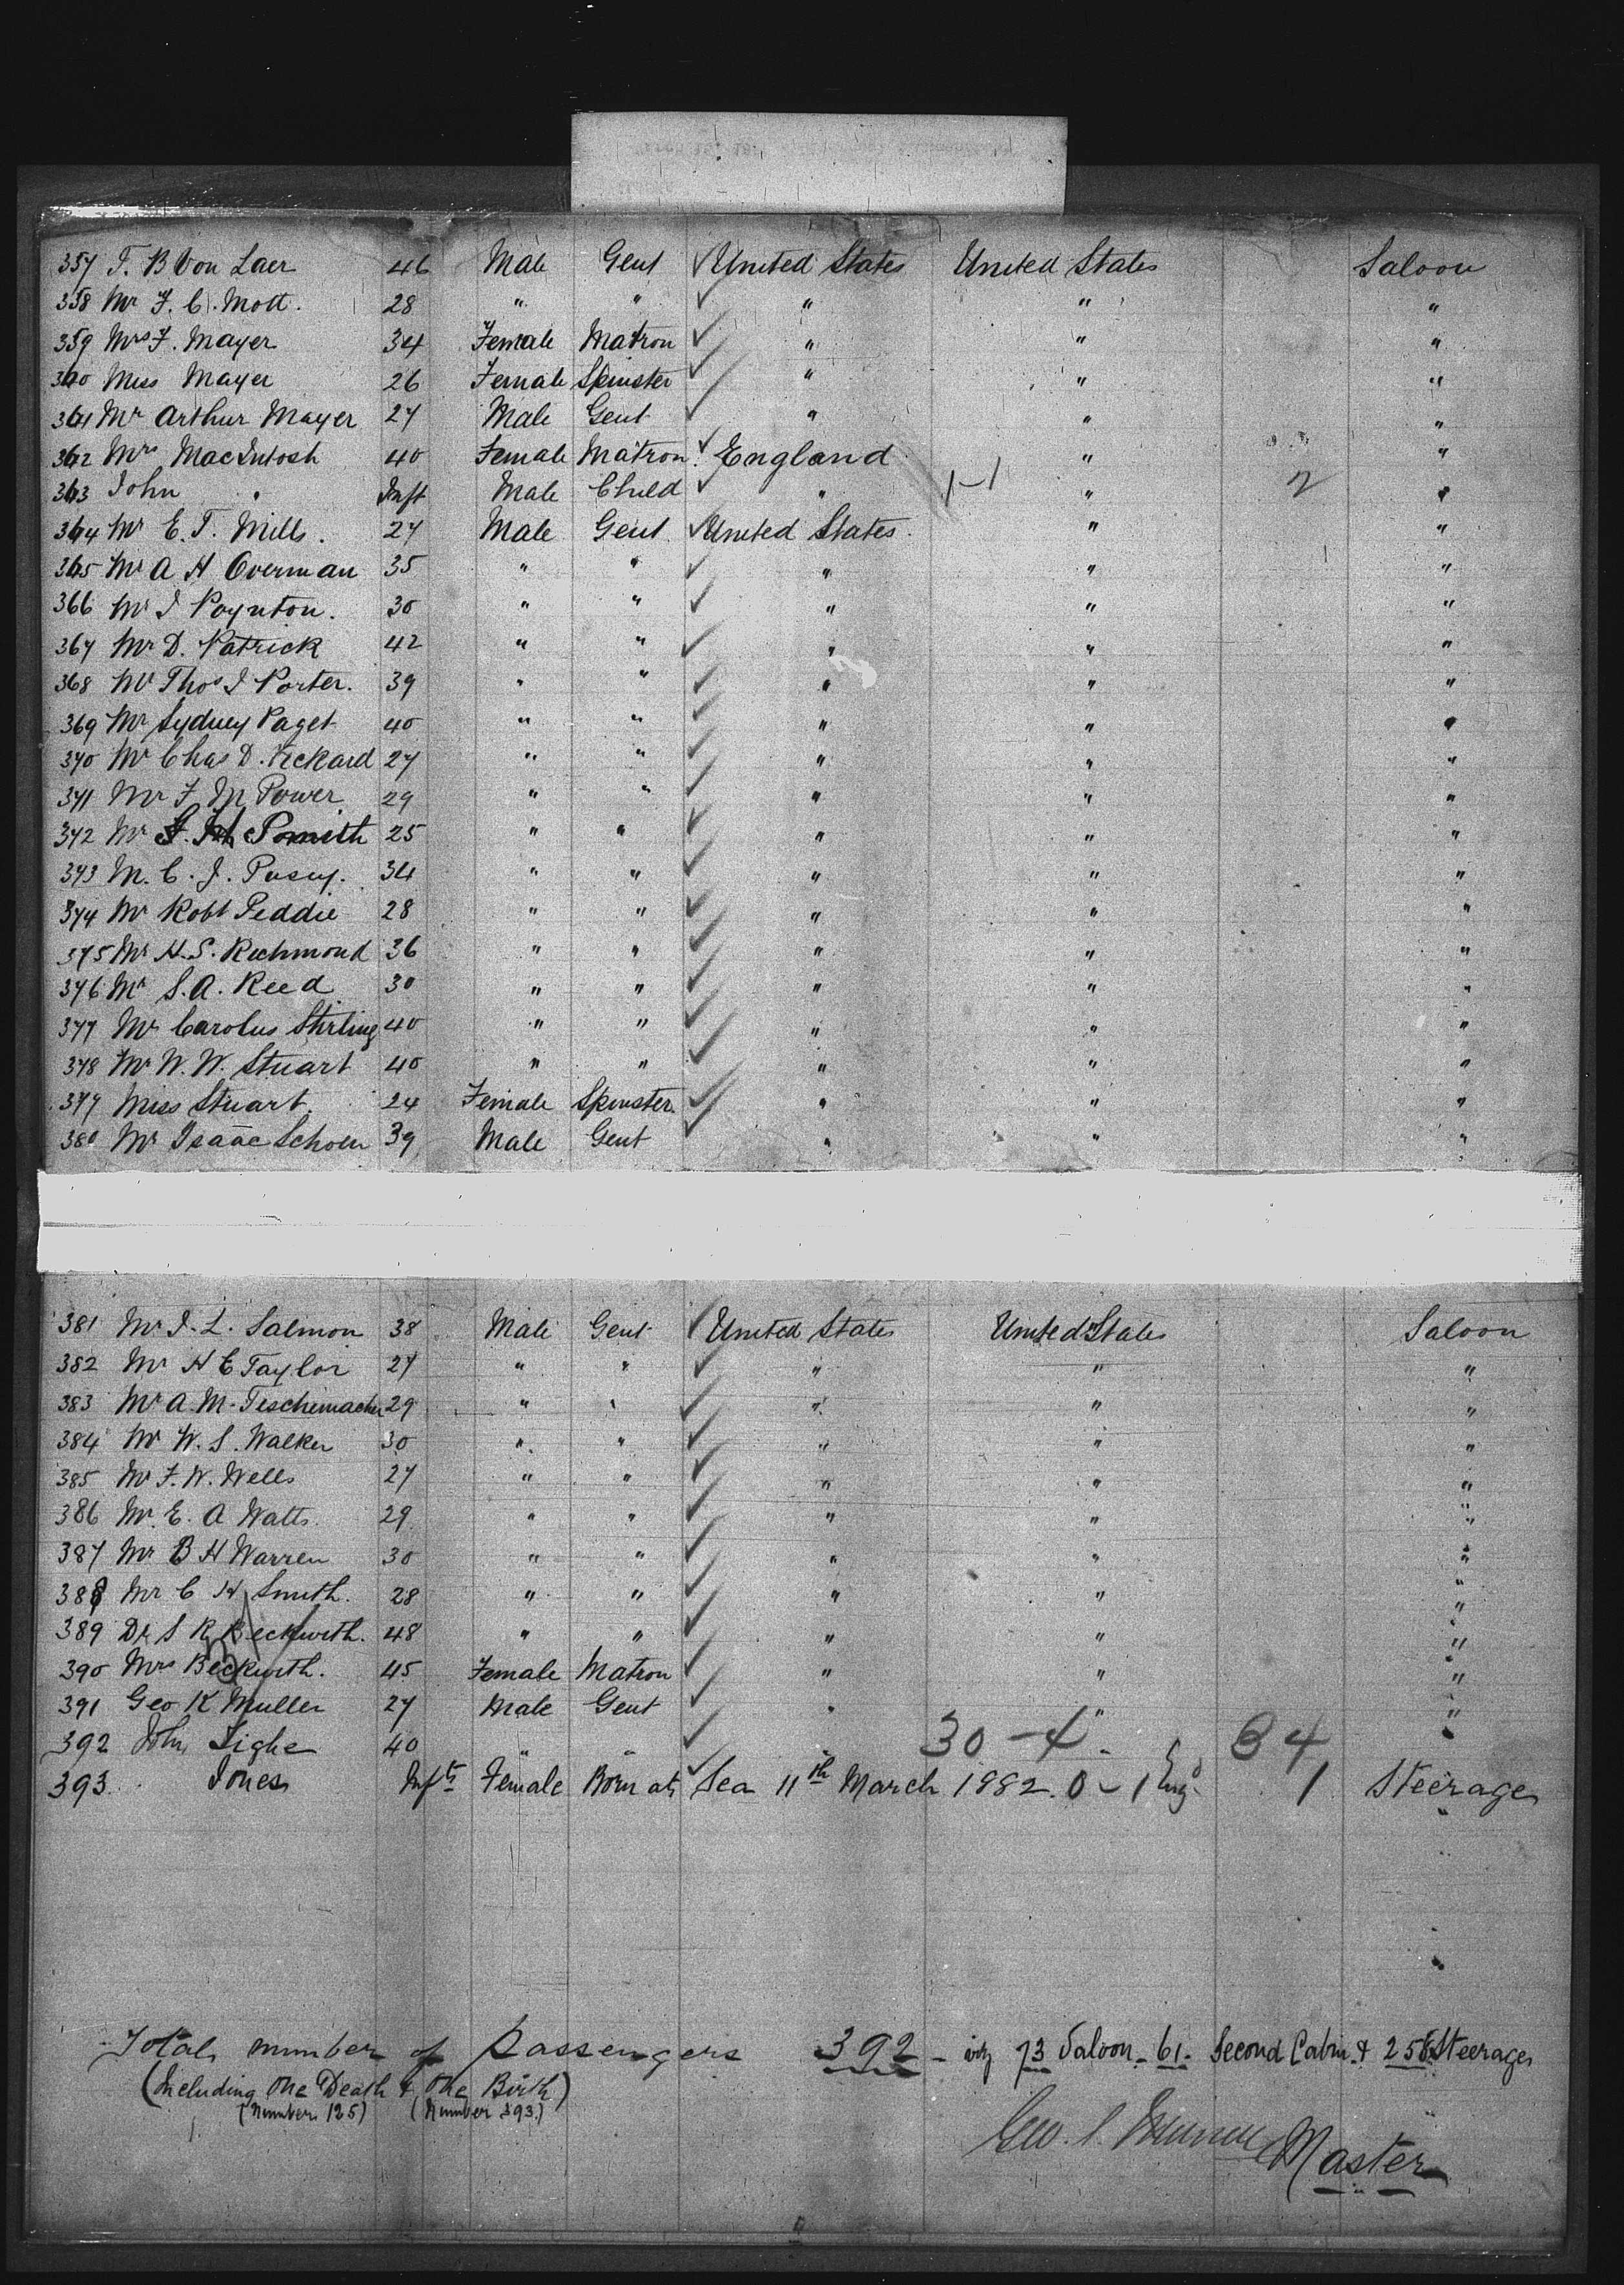 357 T. B Von Laer 46 Male Gent ✓ United States United States Saloon
358 Mr F. C. Mott. 28 " " ✓ " " "
359 Mrs F. Mayer 34 Female Matron ✓ " " "
360 Miss Mayer 26 Female Spinster ✓ " " "
361 Mr Arthur Mayer 27 Male Gent ✓ " " "
362 Mrs MacIntosh 40 Female Matron ✓ England " "
363 John " Inft Male Child ✓ " 1-1 " 2 "
364 Mr E. T. Mills. 27 Male Gent ✓ United States. " "
365 Mr A H Overman 35 " " ✓ " " "
366 Mr J Poynton. 30 " " ✓ " " "
367 Mr D. Patrick 42 " " ✓ " " "
368 Mr Thos J Porter. 39 " " ✓ " " "
369 Mr Sydney Paget 40 " " ✓ " " "
370 Mr Chas D. Pickard 27 " " ✓ " " "
371 Mr F M Power 29 " " ✓ " " "
372 Mr 25 " " ✓ " " "
373 M. C. J. Pusey. 34 " " ✓ " " "
374 Mr Robt Peddie 28 " " ✓ " " "
375 Mr H. S. Richmond 36 " " ✓ " " "
376 Mr S. A. Reed 30 " " ✓ " " "
377 Mr Carolus Stirling 40 " " ✓ " " "
378 Mr W. W. Stuart 40 " " ✓ " " "
379 Miss Stuart. 24 Female Spinster. ✓ " " "
380 Mr Isaac Schoen 39 Male Gent ✓ " " "
381 Mr J. L. Salmon 38 Male Gent ✓ United States United States Saloon
382 Mr H E Taylor 27 " " ✓ " " "
383 Mr A. M. Teschemacher 29 " " ✓ " " "
384 Mr W. S. Walker 30 " " ✓ " " "
385 Mr F. W. Wells 27 " " ✓ " " "
386 Mr. E. A Watts. 29 " " ✓ " " "
387 Mr B H Warren 30 " " ✓ " " "
388 Mr C H Smith. 28 " " ✓ " " "
389 Dr S R Beckwith. 48 " " ✓ " " "
390 Mrs Beckwith. 45 Female Matron ✓ " " "
391 Geo K Muller 27 Male Gent ✓ " " "
392 John Tighe 40 " " ✓ " 30-4 " 34 "
393 Jones Inft Female Born at Sea 11th March 1882. 0-1 Eng 1 Steerage
Total number of passengers 392 - viz 73 Saloon - 61 - Second Cabin & 258 Steerage
(Including One Death & One Birth)
(Number 125) (Number 393.)
Master